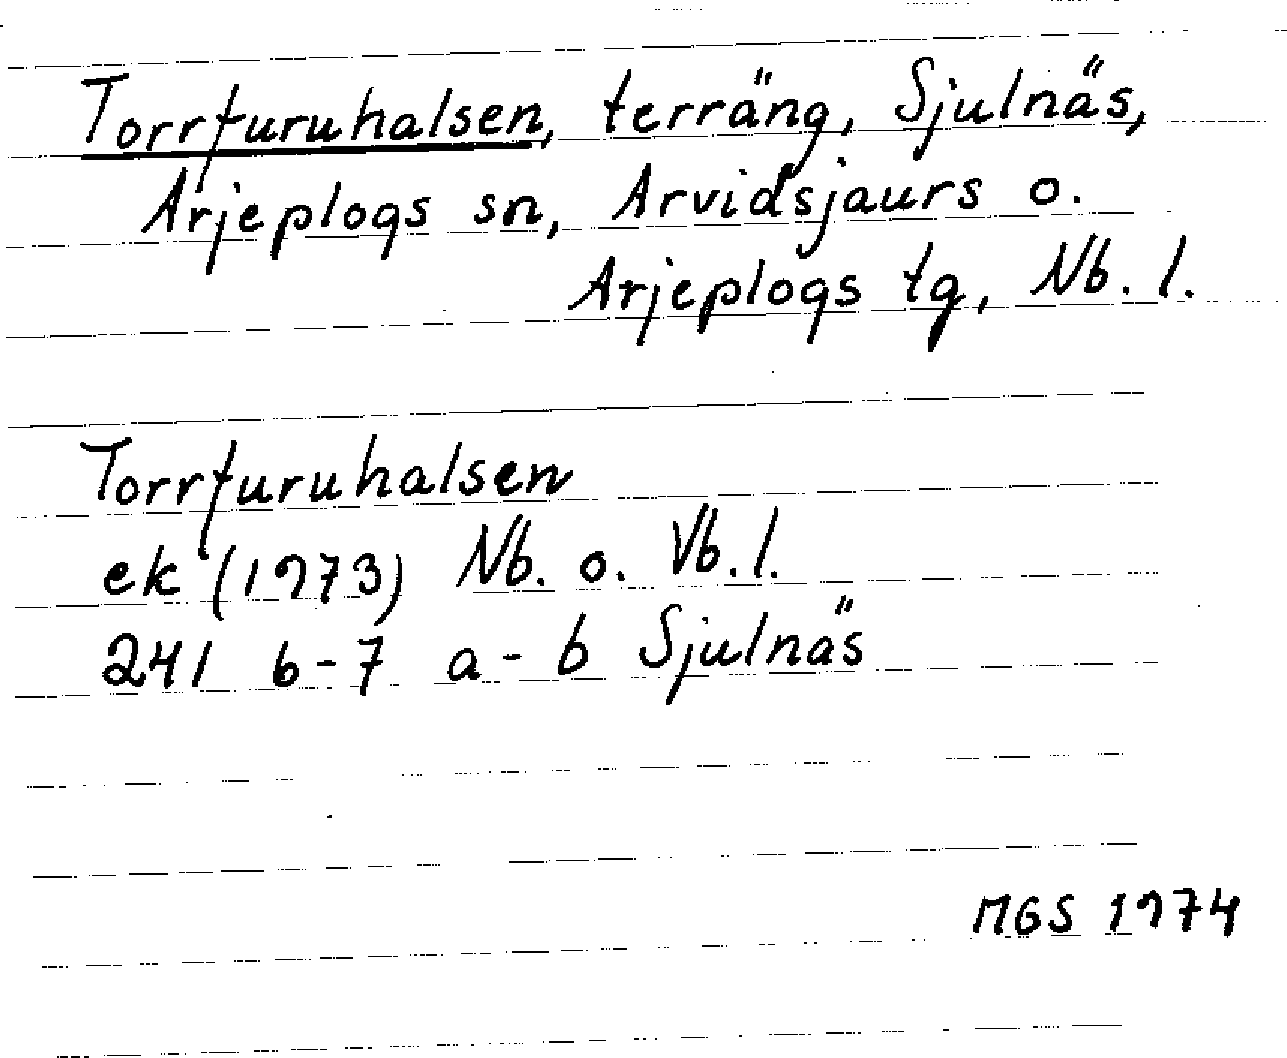 Torrfuruhalsen, terräng, Sjulnäs,
Arjeplogs sn, Arvidsjaurs o.
Arjeplogs tg, Nb. l.
Torrfuruhalsen
ek (1973) Nb. o. Vb. l.
241 6-7 a-b Sjulnäs
MGS 1974